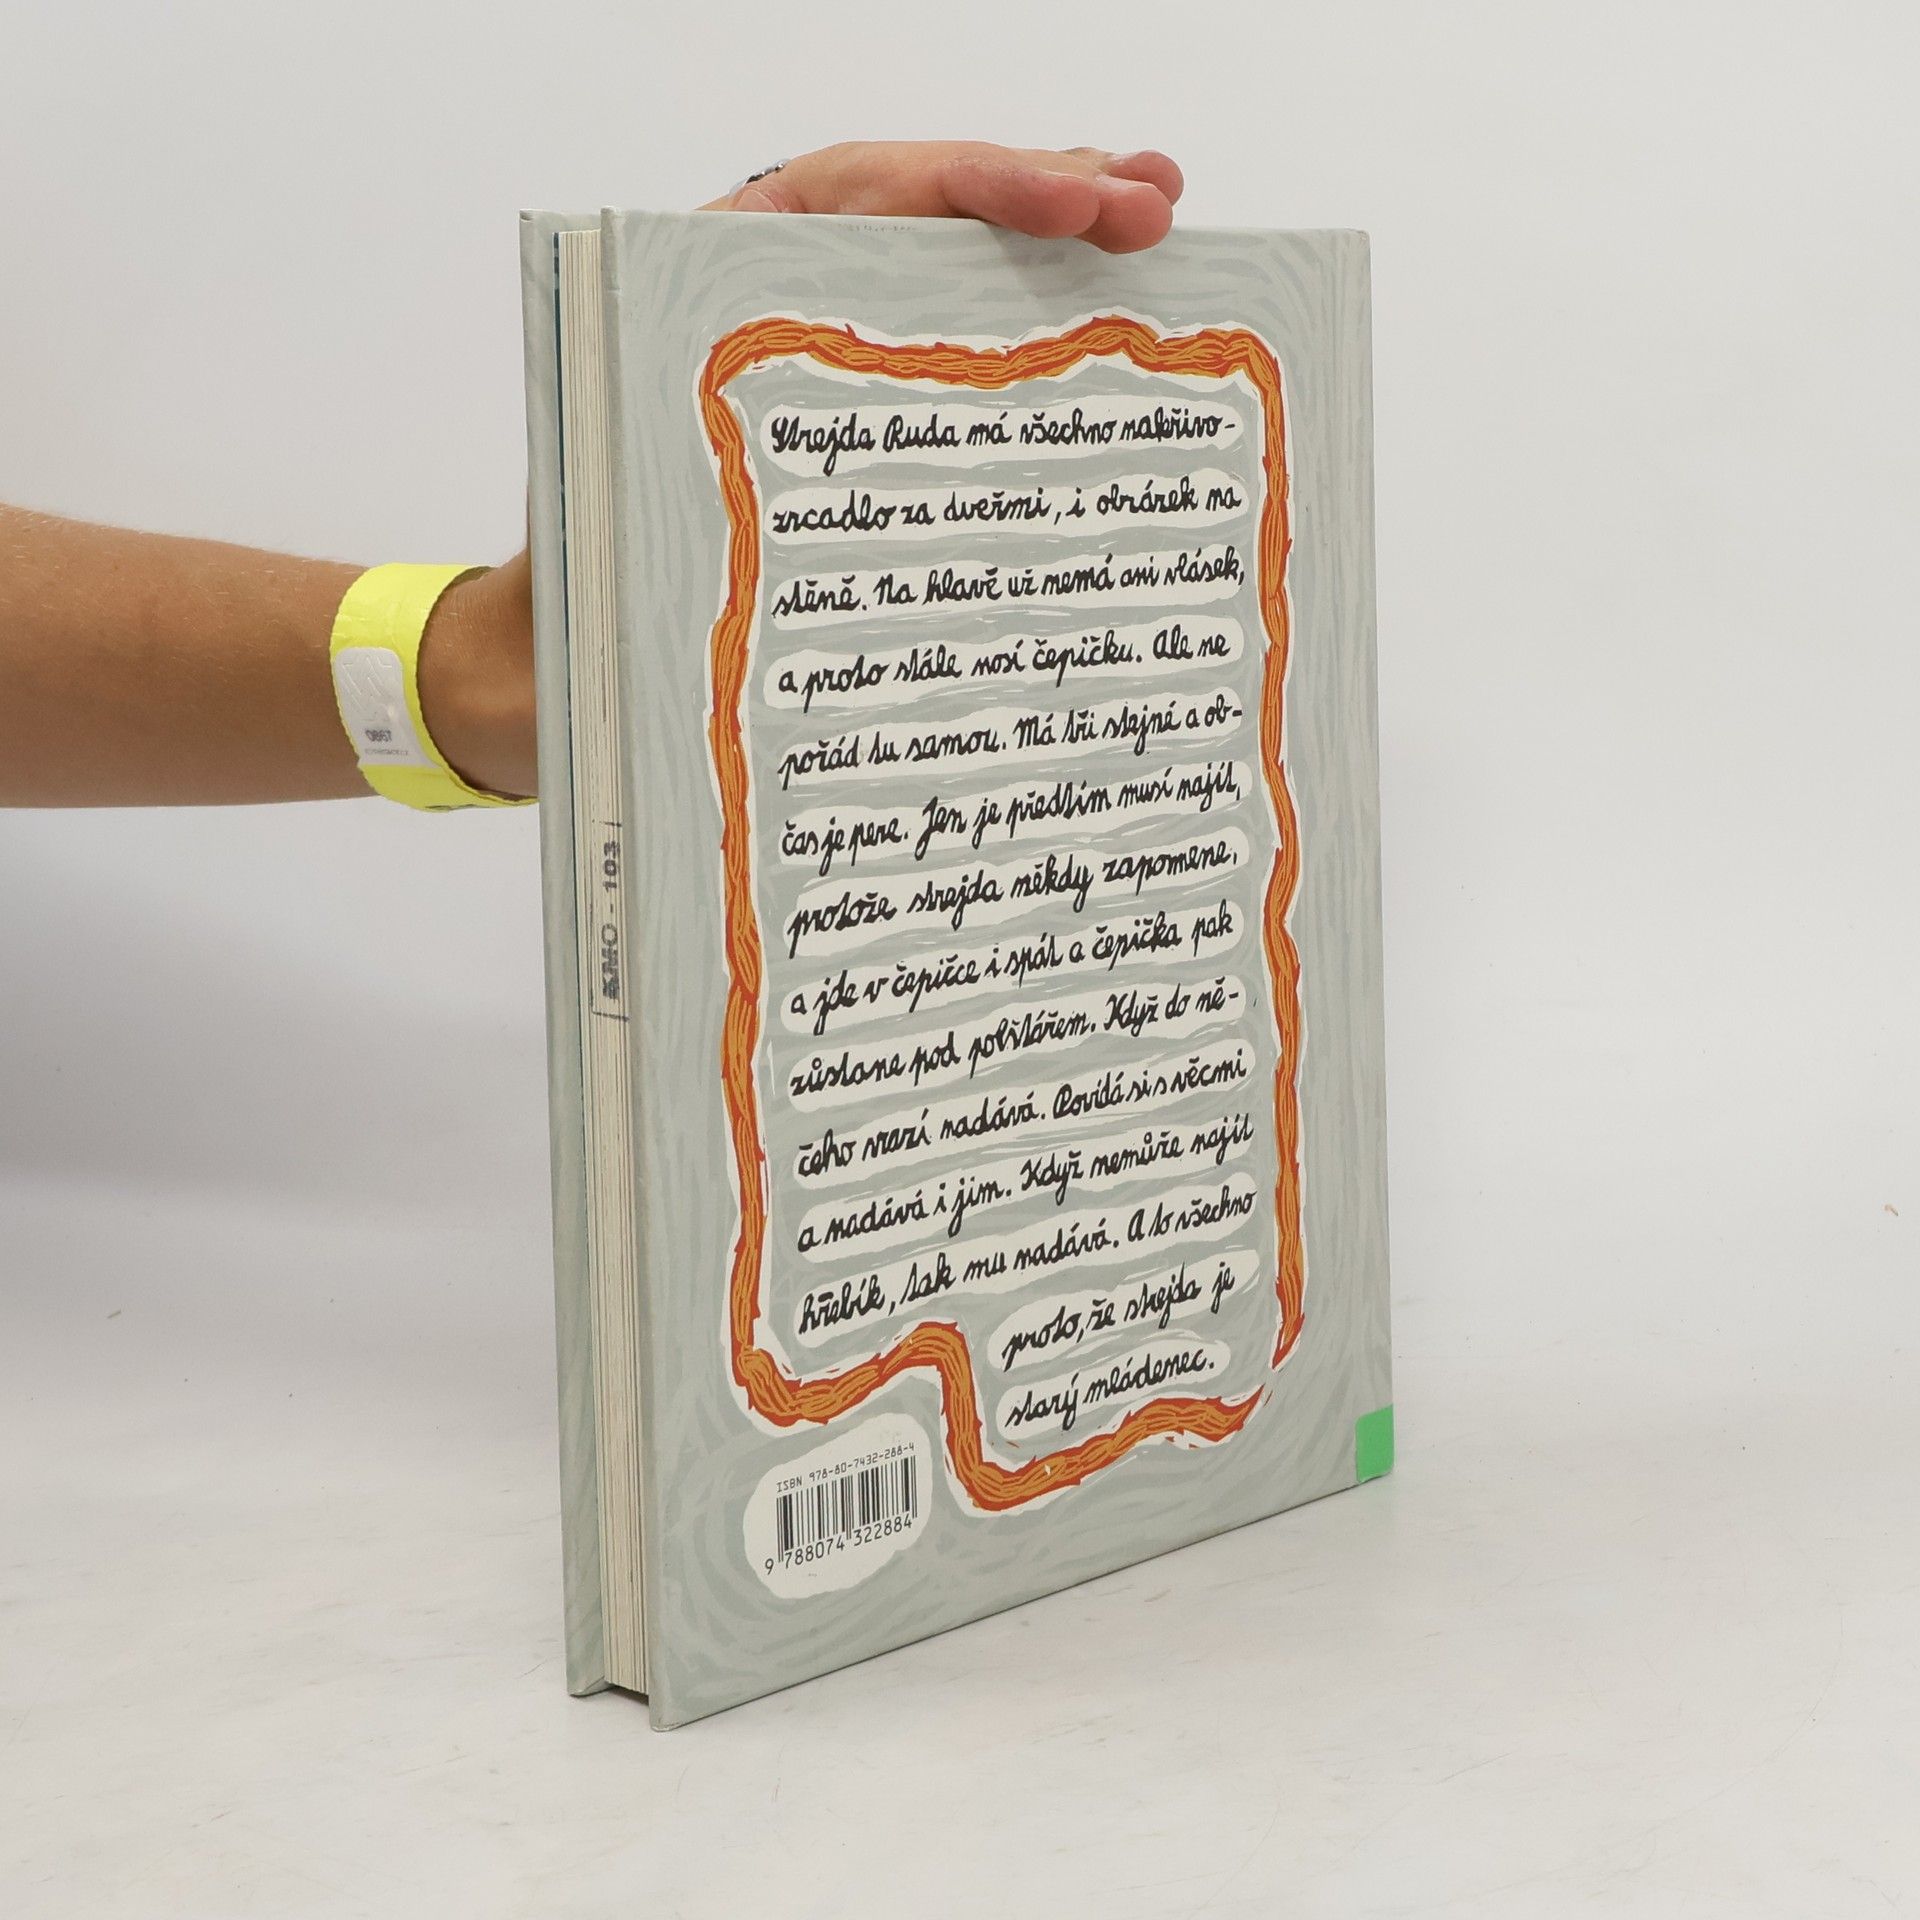 Strejda Ruda má všechno nakřivo-
zrcadlo za dveřmi, i obrázek na
stěně. Na hlavě už nemá ani vlásek,
a proto stále nosí čepičku. Ale ne
pořád tu samou. Má tři stejné a ob-
čas je pere. Jen je předtím musí najít,
protože strejda někdy zapomene,
a jde v čepičce i spát a čepička pak
zůstane pod polštářem. Když do ně-
čeho vrazí nadává. Povídá si s věcmi
a nadává i jim. Když nemůže najít
hřebík, tak mu nadává. A to všechno
proto, že strejda je
starý mládenec.
ISBN 978-80-7432-288-4
9 788074 322884
KMO - 103
0867